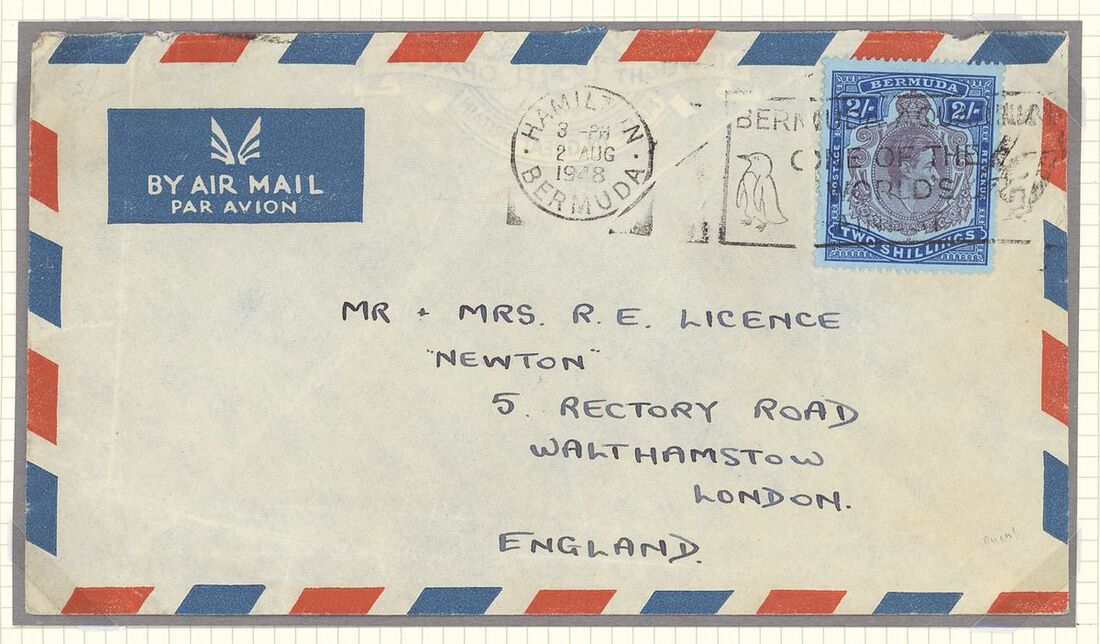 BY AIR MAIL
PAR AVION
HAMILTON
3 -PM
2 AUG
1948
BERMUDA
BERMUDA
OF THE
WORLD'S
BERMUDA
2/- 2/-
POSTAGE
REVENUE
TWO SHILLINGS
MR + MRS. R. E. LICENCE
"NEWTON"
5. RECTORY ROAD
WALTHAMSTOW
LONDON.
ENGLAND.
ouch!